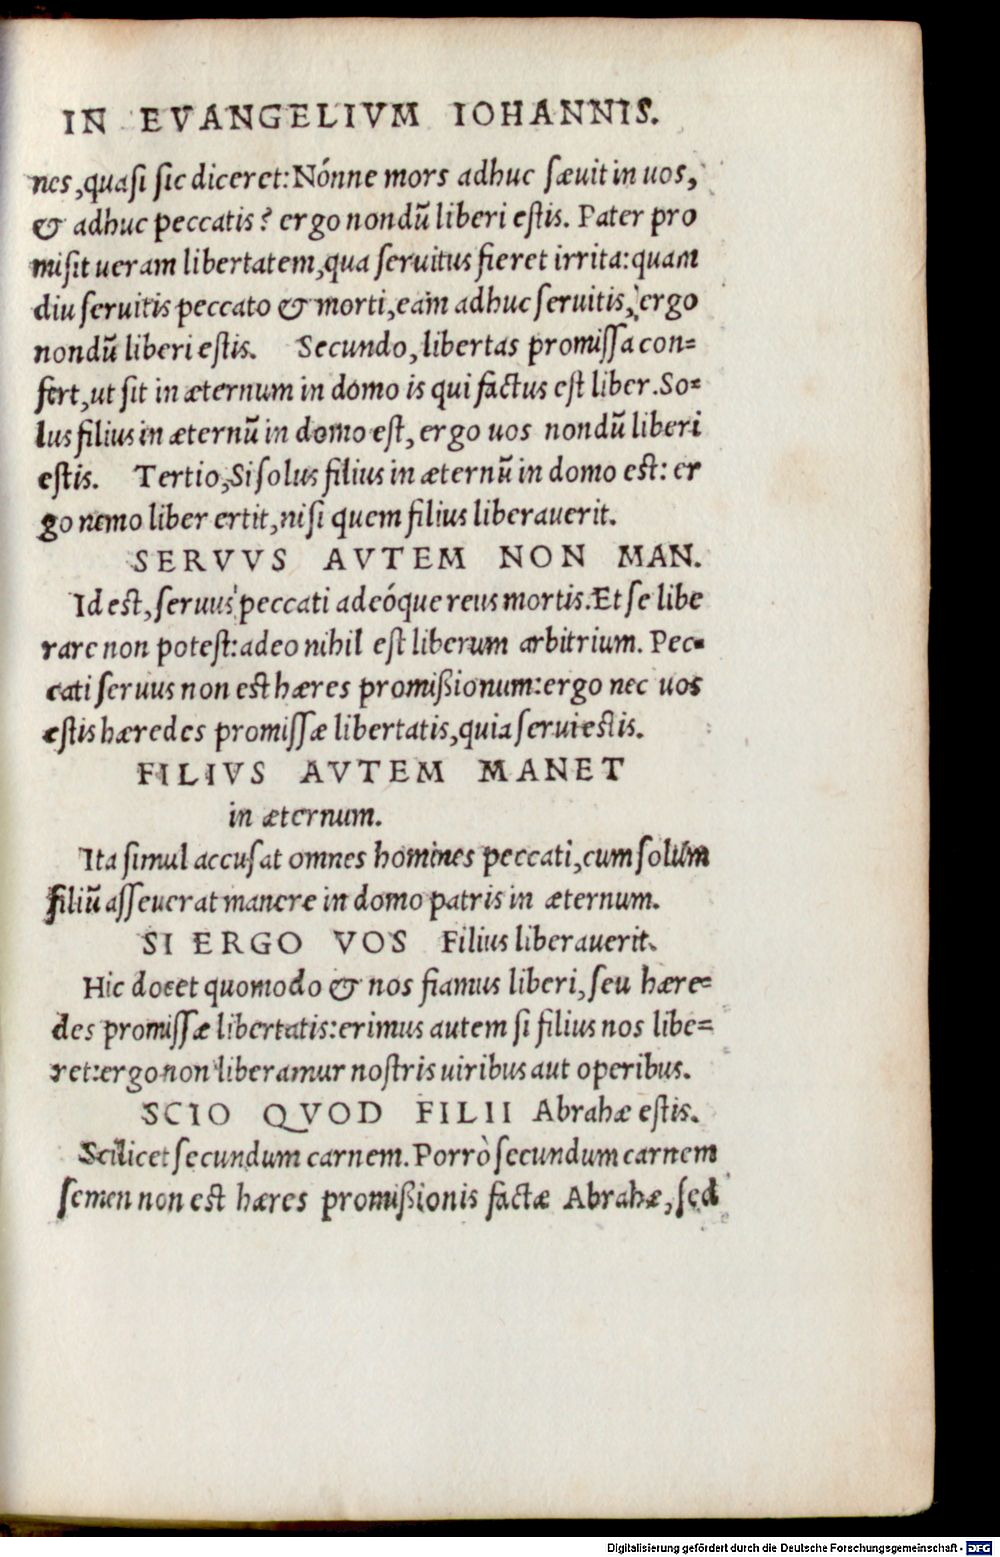 IN EVANGELIVM IOHANNIS.
nes, quasi sic diceret: Nónne mors adhuc sæuit in uos,
& adhuc peccatis? ergo nondũ liberi estis. Pater pro
misit ueram libertatem, qua seruitus fieret irrita: quam
diu seruitis peccato & morti, eam adhuc seruitis, ergo
nondũ liberi estis. Secundo, libertas promissa con=
fert, ut sit in æternum in domo is qui factus est liber. So=
lus filius in æternũ in domo est, ergo uos nondũ liberi
estis. Tertio, Si solus filius in æternũ in domo est: er
go nemo liber ertit, nisi quem filius liberauerit.
SERVVS AVTEM NON MAN.
Id est, seruus peccati adeóque reus mortis. Et se libe
rare non potest: adeo nihil est liberum arbitrium. Pec=
cati seruus non est hæres promißionum: ergo nec uos
estis hæredes promissæ libertatis, quia serui estis.
FILIVS AVTEM MANET
in æternum.
Ita simul accusat omnes homines peccati, cum solum
filiũ asseuerat manere in domo patris in æternum.
SI ERGO VOS Filius liberauerit.
Hic docet quomodo & nos fiamus liberi, seu hære=
des promissæ libertatis: erimus autem si filius nos libe=
ret: ergo non liberamur nostris uiribus aut operibus.
SCIO QVOD FILII Abrahæ estis.
Scilicet secundum carnem. Porrò secundum carnem
semen non est hæres promißionis factæ Abrahæ, sed
Digitalisierung gefördert durch die Deutsche Forschungsgemeinschaft - DFG